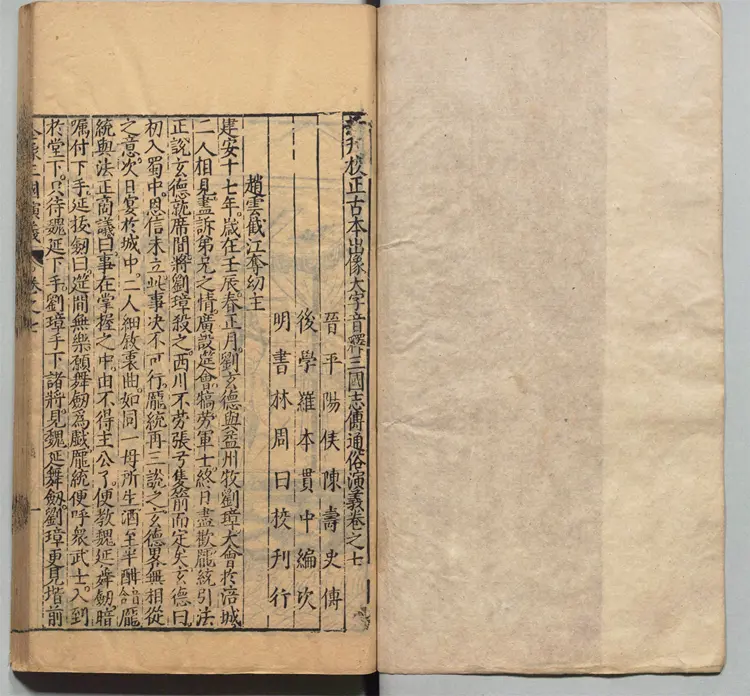 新刊校正古本出像大字音釋三國志傳通俗演義卷之七
晉平陽侯陳壽史傳
後學羅本貫中編次
明書林周曰校刊行
趙雲截江奪幼主
建安十七年歲在壬辰春正月劉玄德與益州牧劉璋大會於涪城
二人相見盡訴弟兄之情廣設筵會犒勞軍士終日盡歡龐統引法
正說玄德就席間將劉璋殺之西川不勞張弓隻箭而定矣玄德曰
初入蜀中恩信未立此事决不可行龐統再三說之玄德畧無相從
之意次日宴於城中二人細敘衷曲如同一母所生酒至半酣龐
統與法正商議曰事在掌握之中由不得主公了便教魏延舞劔暗
囑付下手延拔劔曰筵間無樂願舞劔爲戱龐統便呼衆武士入到
於堂下只待魏延下手劉璋手下諸將見魏延舞劔劉璋更見堦前
全像三國演義 卷之七 一